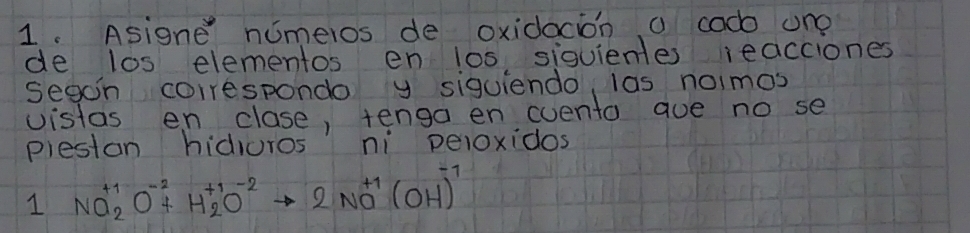 1. Asigne números de oxidación a cada uno
de los elementos en los siguientes reacciones
según corresponda y siguiendo las normas
vistas en clase, tenga en cuenta que no se
prestan hidruros ni peroxidos
1 Na₂⁺¹ O⁻² + H₂⁺¹O⁻² → 2 Na⁺¹ (OH)⁻¹